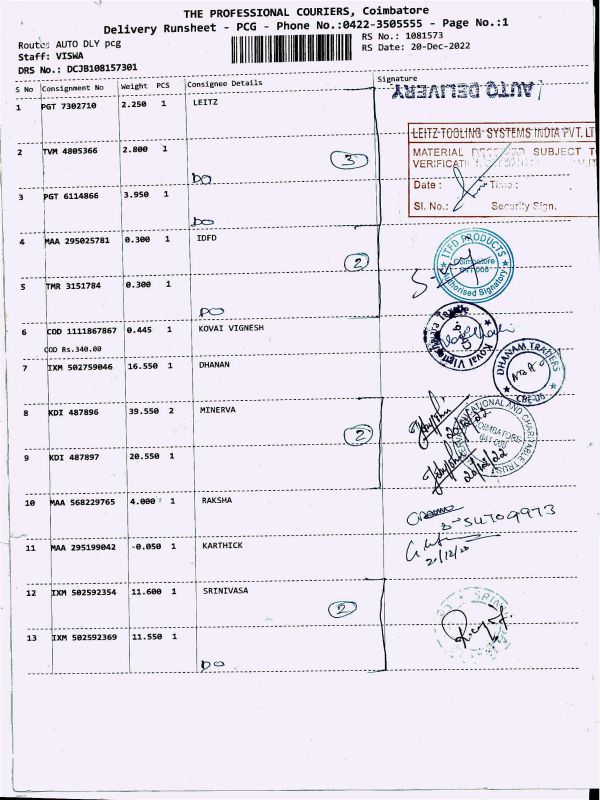 THE PROFESSIONAL COURIERS, Coimbatore
Delivery Runsheet - PCG - Phone No.:0422-3505555 - Page No.:1
Route: AUTO DLY pcg
RS No.: 1081573
Staff: VISWA
RS Date: 20-Dec-2022
DRS No.: DCJB108157301
S No Consignment No Weight PCS Consignee Details Signature
AUTO DELIVERY
1 PGT 7302710 2.250 1 LEITZ
LEITZ TOOLING SYSTEMS INDIA PVT. LT
MATERIAL SUBJECT T
2 TVM 4805366 2.800 1
3
DO
Date : Time :
3 PGT 6114866 3.950 1
Sl. No.: Security Sign.
DO
4 MAA 295025781 0.300 1 IDFD
2
ITFD PRODUCTS
Coimbatore
Authorised Signatory
5 TMR 3151784 0.300 1
DO
6 COD 1111867867 0.445 1 KOVAI VIGNESH
COD Rs.340.00
7 IXM 502759046 16.550 1 DHANAN
DHANAM TRADERS
CBE-06
8 KDI 487896 39.550 2 MINERVA
2
20/12/22
9 KDI 487897 20.550 1
20/12/22
10 MAA 568229765 4.000 1 RAKSHA
11 MAA 295199042 -0.050 1 KARTHICK
12 IXM 502592354 11.600 1 SRINIVASA
2
13 IXM 502592369 11.550 1
DO